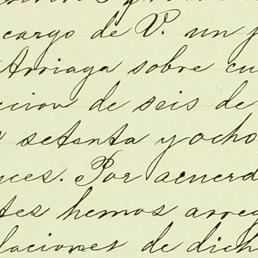 cargo de V. un p
Arriaga sobre cu
cion de seis de
setenta y ocho
ces. Por acuerd
tes hemos arreg
laciones de dich